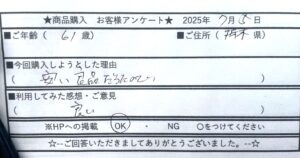 ★商品購入 お客様アンケート★ 2025年7月5日
■ご年齢( 61歳) ■ご住所( 栃木 県)
■今回購入しようとした理由
( 安い 良品だったので )
■利用してみた感想・ご意見
( 良い )
※HPへの掲載 OK ・ NG ○をつけてください
☆--ご回答いただきましてありがとうございました。--☆